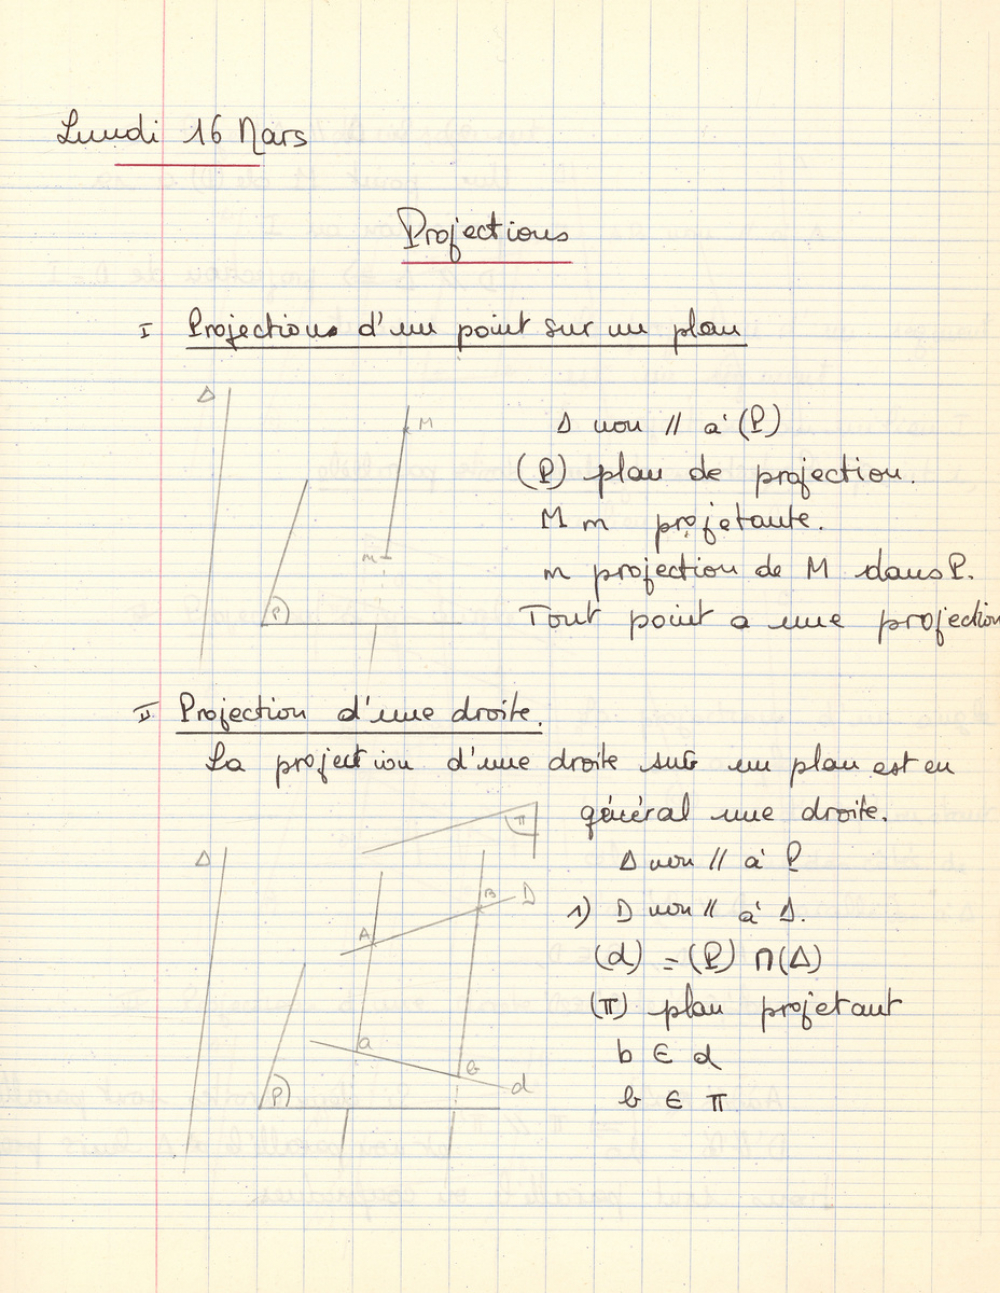 Lundi 16 Mars
Projections
I Projections d'un point sur un plan
Δ
M
m
P)
Δ non // à (P)
(P) plan de projection.
M m projetante.
m projection de M dans P.
Tout point a une projection
II Projection d'une droite.
La projection d'une droite sur un plan est en
général une droite.
π
Δ
B D
A
a
b
d
P)
Δ non // à P
1) D non // à Δ.
(d) = (P) ∩ (Δ)
(π) plan projetant
b ∈ d
b ∈ π